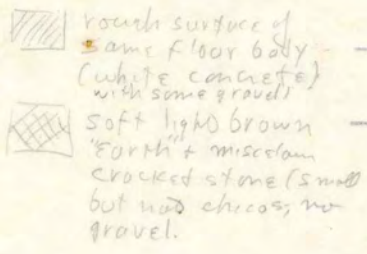 rough surface of
same floor body
(white concrete)
with some gravel)
soft light brown
"Earth" +
crocked stone (small
but not chicos; no
gravel.